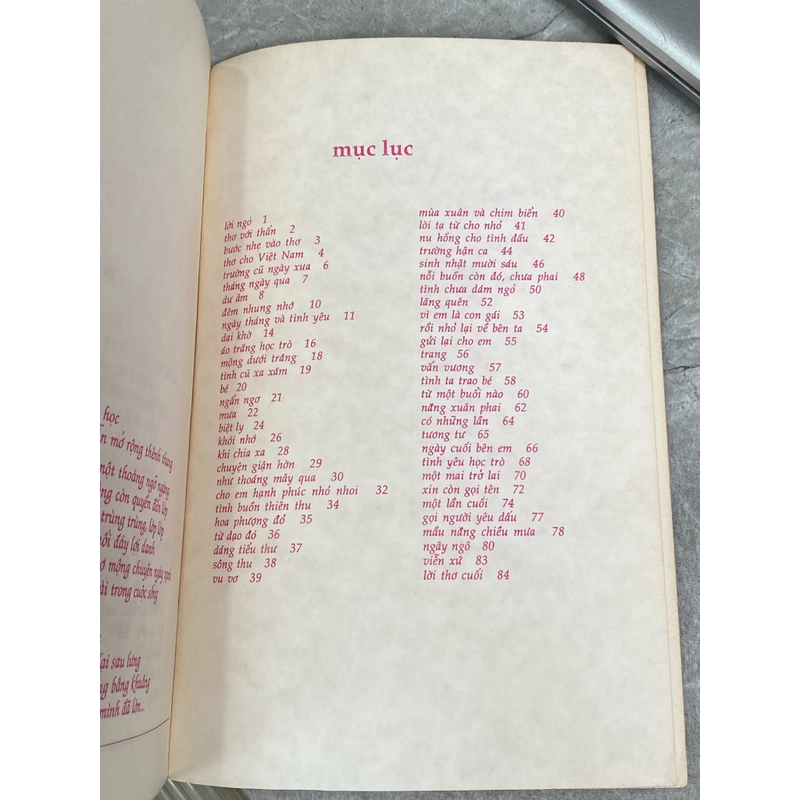 học
mở rộng thênh thang
một thoáng ngỡ ngàng
còn quyến
trùng trùng, lớp lớp
đây lợi danh
mộng chuyện ngày
ài trong cuộc sống
lại sau lưng
bâng khuâng
mình đã lớn...
mục lục
lời ngỏ 1
thơ với thẩn 2
bước nhẹ vào thơ 3
thơ cho Việt Nam 4
trường cũ ngày xưa 6
tháng ngày qua 7
dư âm 8
đêm nhung nhớ 10
ngày tháng và tình yêu 11
dại khờ 14
áo trắng học trò 16
mộng dưới trăng 18
tình cũ xa xăm 19
bé 20
ngẩn ngơ 21
mưa 22
biệt ly 24
khói nhớ 26
khi chia xa 28
chuyện giận hờn 29
như thoáng mây qua 30
cho em hạnh phúc nhỏ nhoi 32
tình buồn thiên thu 34
hoa phượng đỏ 35
từ dạo đó 36
dáng tiểu thư 37
sông thu 38
vu vơ 39
mùa xuân và chim biển 40
lời tạ từ cho nhỏ 41
nụ hồng cho tình đầu 42
trường hận ca 44
sinh nhật mười sáu 46
nỗi buồn còn đó, chưa phai 48
tình chưa dám ngỏ 50
lãng quên 52
vì em là con gái 53
rồi nhỏ lại về bên ta 54
gửi lại cho em 55
trang 56
vấn vương 57
tình ta trao bé 58
từ một buổi nào 60
nắng xuân phai 62
có những lần 64
tương tư 65
ngày cuối bên em 66
tình yêu học trò 68
một mai trở lại 70
xin còn gọi tên 72
một lần cuối 74
gọi người yêu dấu 77
mầu nắng chiều mưa 78
ngây ngô 80
viễn xứ 83
lời thơ cuối 84